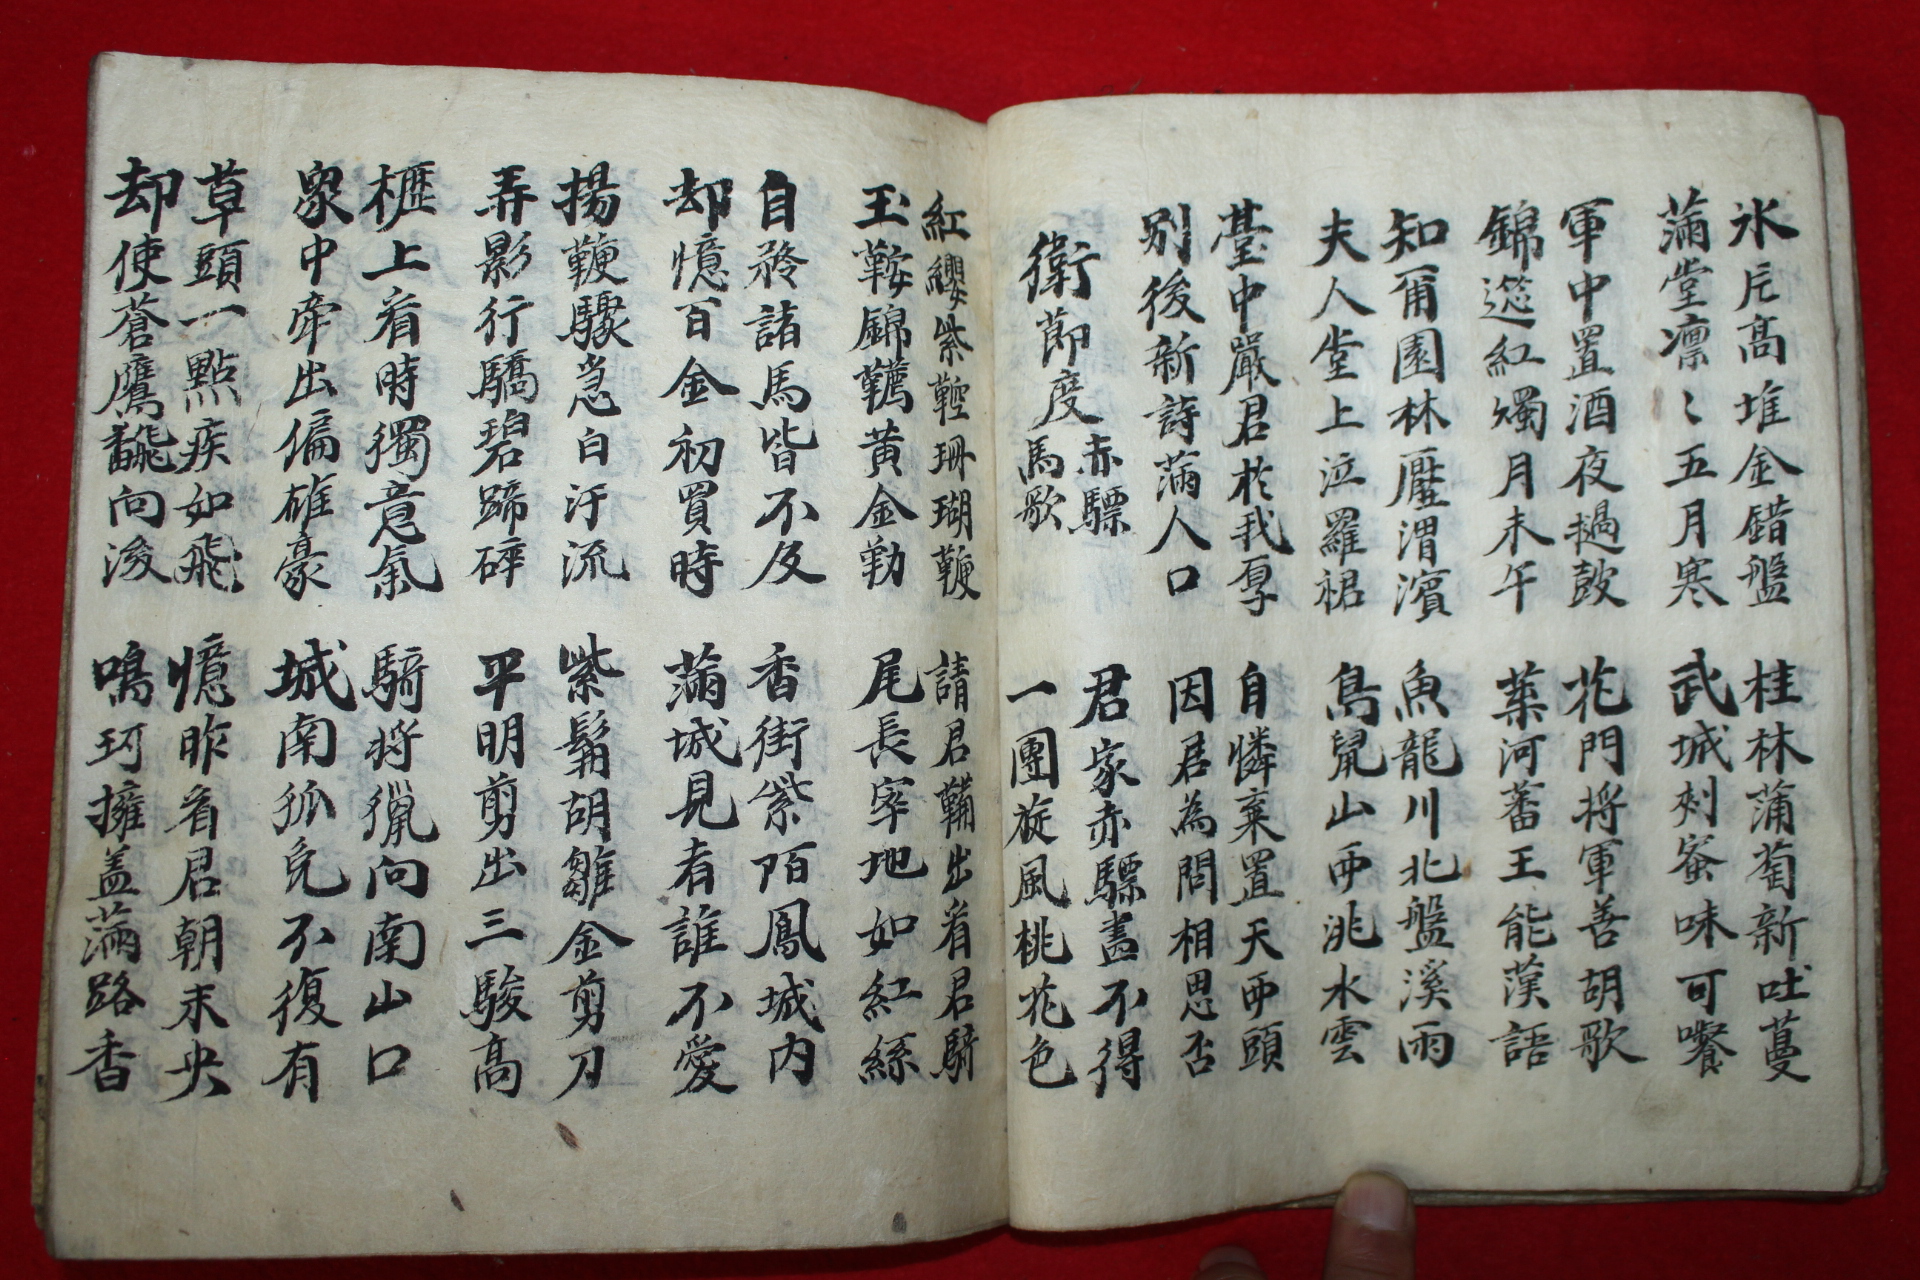 氷片髙堆金錯盤
滿堂凜〻五月寒
桂林蒲萄新吐蔓
武城刺蜜味可饗
軍中置酒夜撾鼓
錦筵紅燭月未午
花門將軍善胡歌
葉河蕃王能漢語
知爾園林壓渭濱
夫人堂上泣羅裙
魚龍川北盤溪雨
鳥鼠山西洮水雲
臺中嚴君於我厚
別後新詩滿人口
自憐棄置天西頭
因君為問相思否
衛節度赤驃馬歌
君家赤驃畫不得
一團旋風桃花色
紅纓紫鞚珊瑚鞭
玉鞍錦韉黃金勒
請君鞴出看君騎
尾長窣地如紅絲
自矜諸馬皆不及
却憶百金初買時
香街紫陌鳳城内
滿城見者誰不愛
揚鞭驟急白汗流
弄影行驕碧蹄碎
紫髯胡雛金剪刀
平明剪出三駿髙
櫪上看時獨意氣
眾中牽出偏雄豪
騎將獵向南山口
城南狐兔不復有
草頭一點疾如飛
却使蒼鷹翻向後
憶昨看君朝未央
鳴珂擁盖滿路香